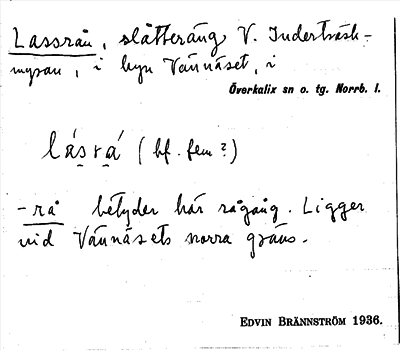 Lassrån, slåtteräng V. Inderträsk-
myran, i byn Vännäset, i
Överkalix sn o. tg. Norrb. l.
lásrá (bf. fem?)
-rå betyder här rågång. Ligger
vid Vännäsets norra gräns.
EDVIN BRÄNNSTRÖM 1936.